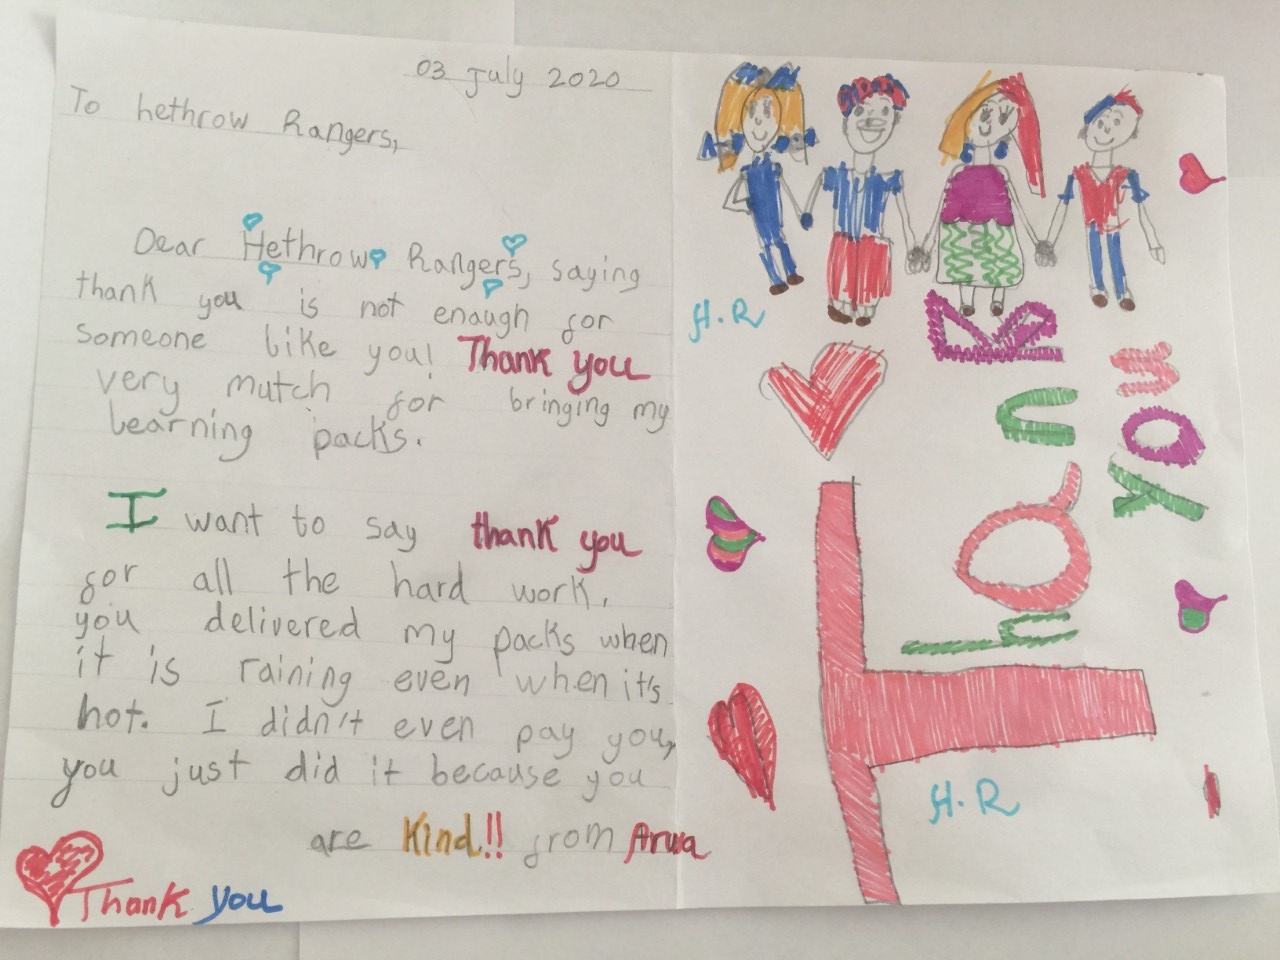 03 July 2020
To hethrow Rangers,
Dear Hethrow Rangers, saying
thank you is not enough for
someone like you! Thank you
very mutch for bringing my
learning packs.
I want to say thank you
for all the hard work.
you delivered my packs when
it is raining even when it's
hot. I didn't even pay you,
you just did it because you
are Kind!! from Arwa
Thank you
H.R
Thank
you
H.R